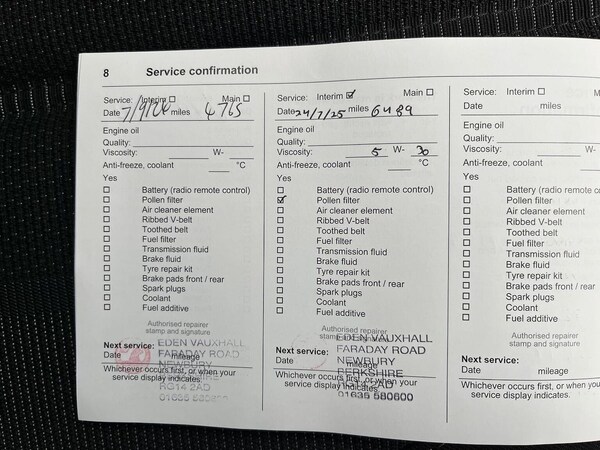 8 Service confirmation
Service: Interim Main
Date 7/9/24 miles 4765
Engine oil
Quality:
Viscosity: W-
Anti-freeze, coolant °C
Yes
Battery (radio remote control)
Pollen filter
Air cleaner element
Ribbed V-belt
Toothed belt
Fuel filter
Transmission fluid
Brake fluid
Tyre repair kit
Brake pads front / rear
Spark plugs
Coolant
Fuel additive
Authorised repairer
stamp and signature
Next service:
Date mileage
Whichever occurs first, or when your
service display indicates.
EDEN VAUXHALL
FARADAY ROAD
NEWBURY
RG14 2AD
01635
Service: Interim Main
Date 24/7/25 miles 6489
Engine oil
Quality:
Viscosity: 5 W- 30
Anti-freeze, coolant °C
Yes
Battery (radio remote control)
Pollen filter
Air cleaner element
Ribbed V-belt
Toothed belt
Fuel filter
Transmission fluid
Brake fluid
Tyre repair kit
Brake pads front / rear
Spark plugs
Coolant
Fuel additive
Authorised repairer
stamp and signature
Next service:
Date mileage
Whichever occurs first, or when your
service display indicates.
EDEN VAUXHALL
FARADAY ROAD
NEWBURY
BERKSHIRE
RG14 2AD
01635 580600
Service: Interim
Date miles
Engine oil
Quality:
Viscosity: W-
Anti-freeze, coolant
Yes
Battery (radio remote co
Pollen filter
Air cleaner element
Ribbed V-belt
Toothed belt
Fuel filter
Transmission fluid
Brake fluid
Tyre repair kit
Brake pads front / rear
Spark plugs
Coolant
Fuel additive
Authorised repairer
stamp and signature
Next service:
Date mileage
Whichever occurs first, or when
service display indicates.